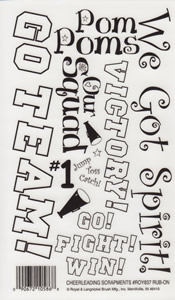 Pom
Poms
We Got Spirit!
GO TEAM!
Our
Squad
VICTORY!
#1
Jump Toss
Catch!
GO!
FIGHT!
WIN!
CHEERLEADING SCRAPMENTS #ROY837 RUB-ON
© Royal & Langnickel Brush Mfg., Inc. Merrillville, IN 46410